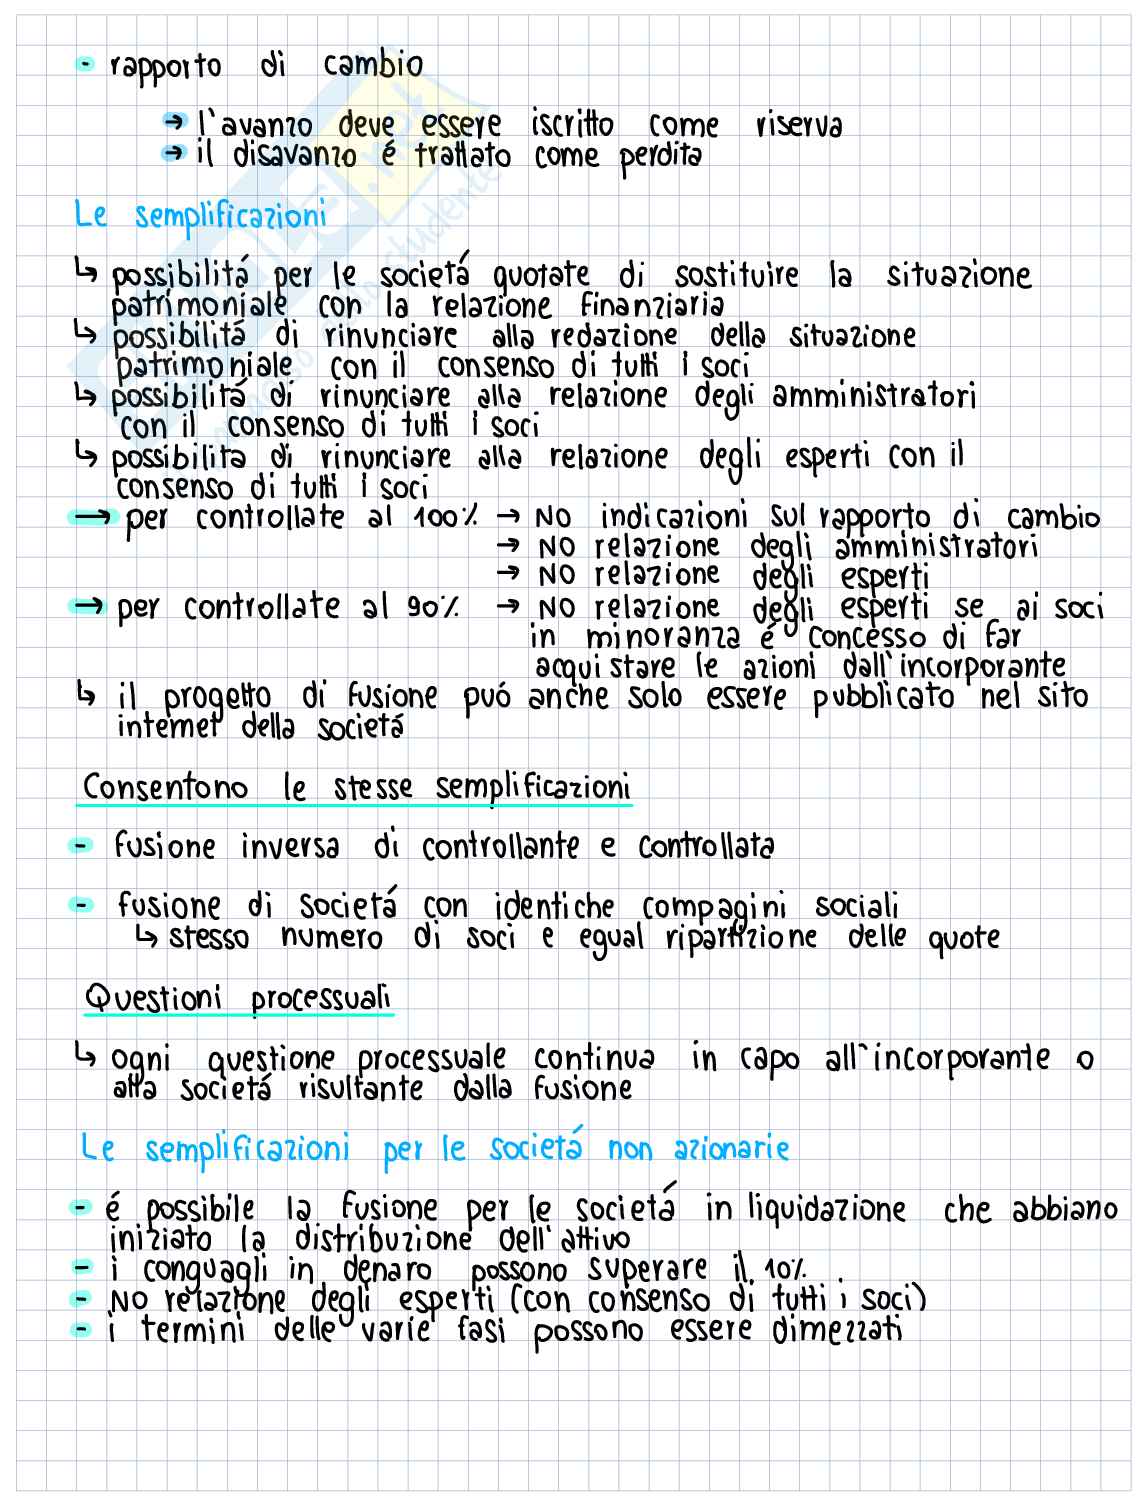 - rapporto di cambio
→ l'avanzo deve essere iscritto come riserva
→ il disavanzo é trattato come perdita
Le semplificazioni
↳ possibilitá per le societá quotate di sostituire la situazione
patrimoniale con la relazione finanziaria
↳ possibilitá di rinunciare alla redazione della situazione
patrimoniale con il consenso di tutti i soci
↳ possibilitá di rinunciare alla relazione degli amministratori
con il consenso di tutti i soci
↳ possibilita di rinunciare alla relazione degli esperti con il
consenso di tutti i soci
→ per controllate al 100% → NO indicazioni sul rapporto di cambio
→ NO relazione degli amministratori
→ NO relazione degli esperti
→ per controllate al 90% → NO relazione degli esperti se ai soci
in minoranza é concesso di far
acquistare le azioni dall'incorporante
↳ il progetto di fusione puó anche solo essere pubblicato nel sito
internet della societá
Consentono le stesse semplificazioni
- fusione inversa di controllante e controllata
- fusione di societá con identiche compagini sociali
↳ stesso numero di soci e egual ripartizione delle quote
Questioni processuali
↳ ogni questione processuale continua in capo all'incorporante o
alla societá risultante dalla fusione
Le semplificazioni per le societá non azionarie
- é possibile la fusione per le societá in liquidazione che abbiano
iniziato la distribuzione dell'attivo
- i conguagli in denaro possono superare il 10%
- NO relazione degli esperti (con consenso di tutti i soci)
- i termini delle varie fasi possono essere dimezzati